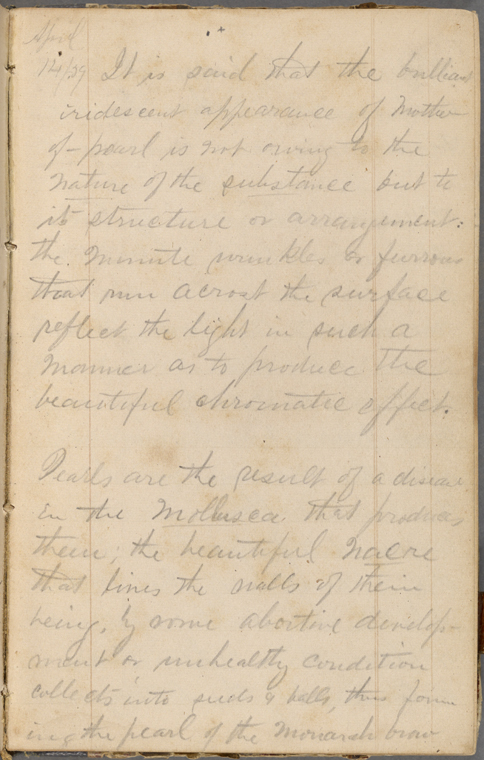 April
14/29 It is said that the brilliant
iridescent appearance of Mother
of-pearl is not owing to the
nature of the substance but to
its structure or arrangement:
the minute wrinkles or furrows
that run acrost the surface
reflect the light in such a
manner as to produce the
beautiful chromatic effect.
Pearls are the result of a disease
in the Mollusca that produces
them; the beautiful Nacre
that lines the walls of their
being, by some abortive develop-
ment or unhealthy condition
collects into seeds & balls, thus form
ing the pearl of the Monarch brow